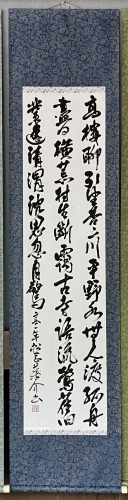 高楼聊引望杳杳一川平野水無人渡孤舟
盡日横荒村生断靄古寺語流鶯舊旧
業遥清渭沈思忽自驚